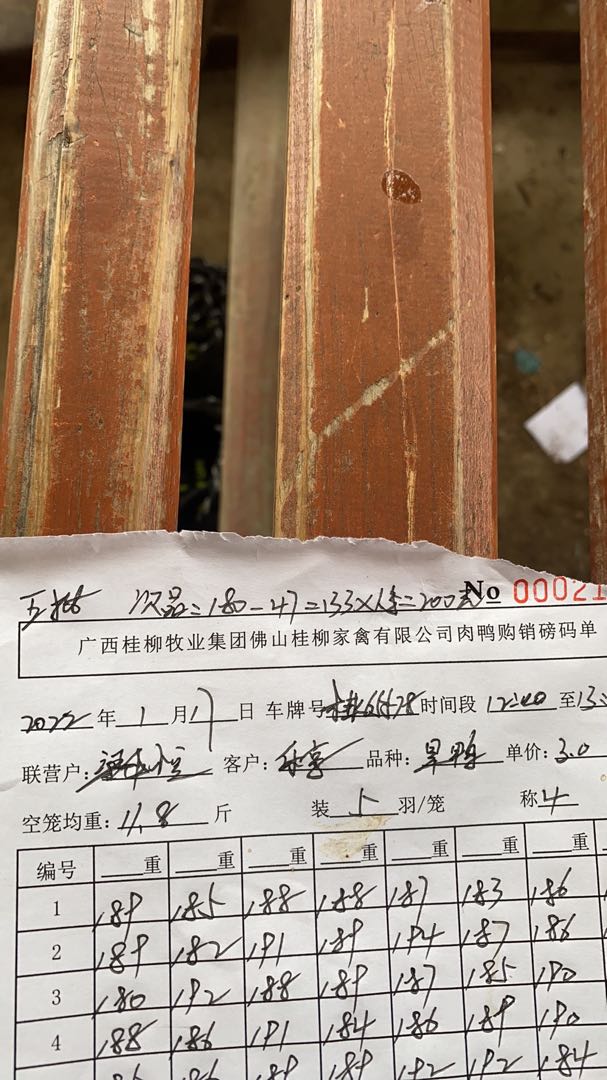 次品=180-47=133×1.5=200元 No 00021
广西桂柳牧业集团佛山桂柳家禽有限公司肉鸭购销磅码单
2022年1月17日 车牌号 时间段12:40至13:
联营户: 客户: 品种: 单价:3.0
空笼均重:11.8斤 装5羽/笼 称4
编号 重 重 重 重 重 重 重
1 189 185 188 188 187 183 186
2 189 182 191 189 194 187 186
3 180 192 188 189 187 185 190
4 188 186 191 184 186 189 190
86 186 189 189 192 192 184